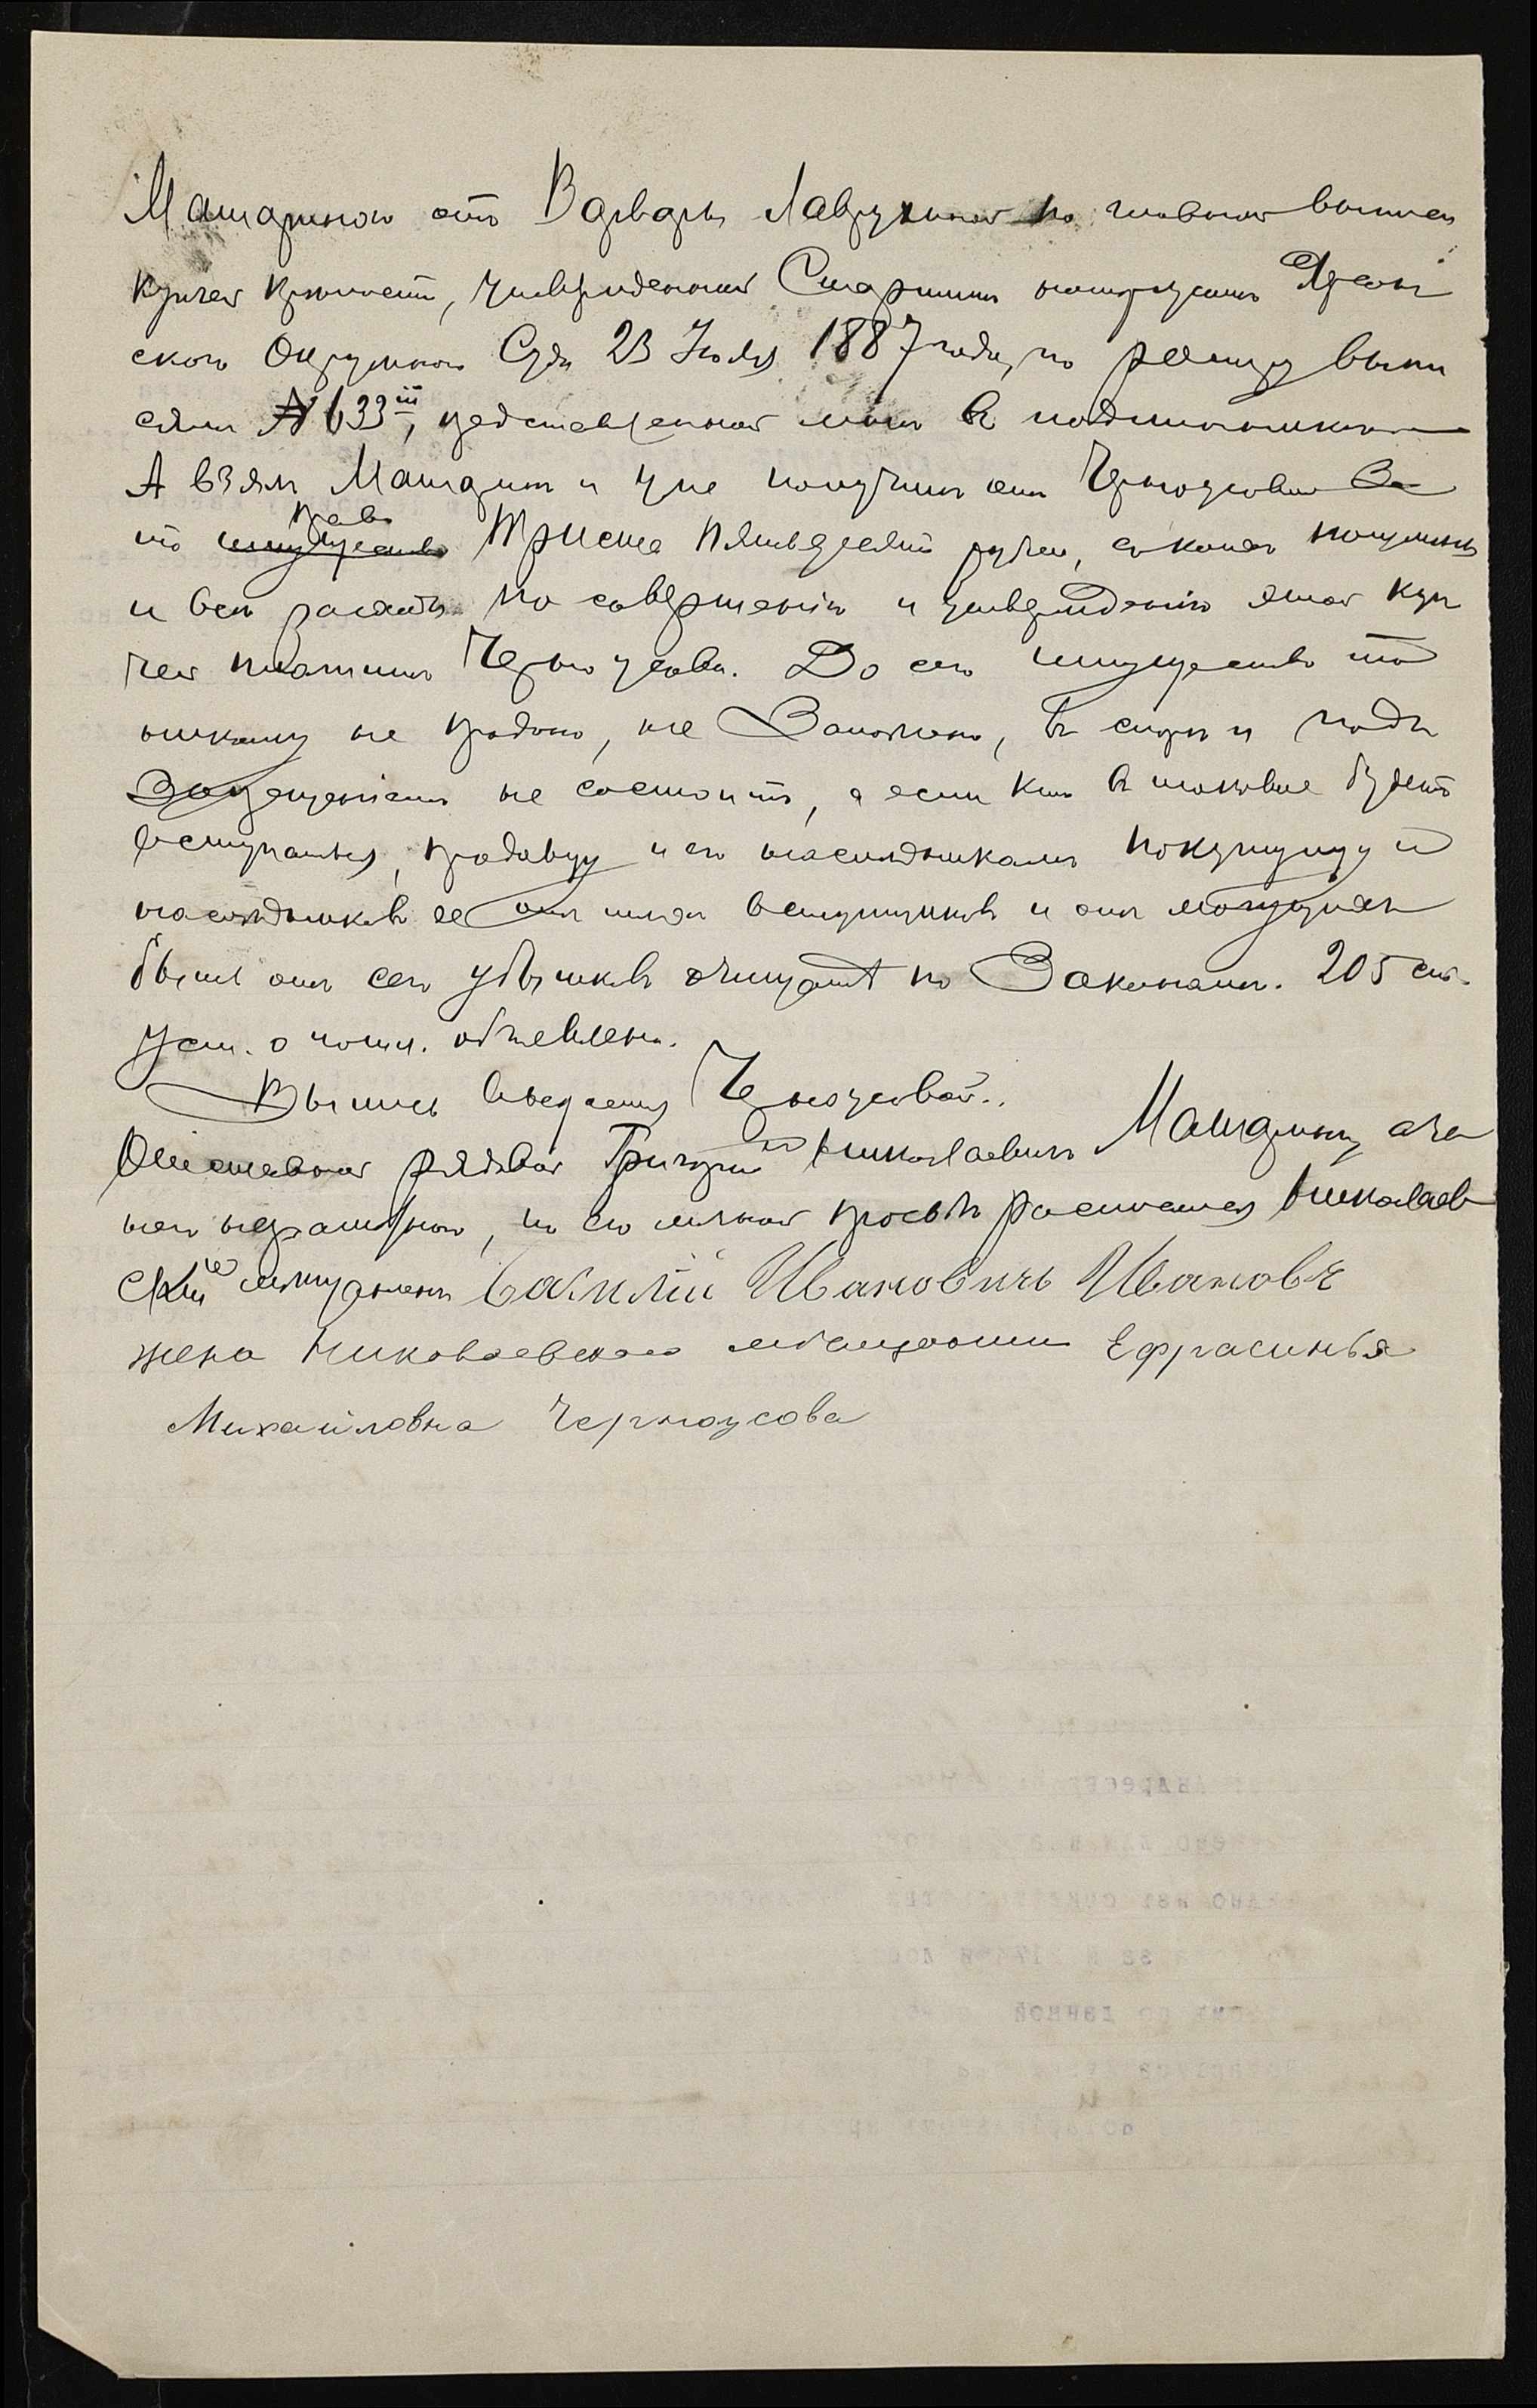 Машариною отъ Варвары Лаврухиной по главной выписи
купчей крѣпости, утвержденной Старшимъ нотаріусомъ
скаго Окружнаго Суда 23 Іюля 1887 года, по реестру выпи
сей № 633ій, представленной мнѣ въ подлинникѣ
А взялъ Машаринъ и уже получилъ отъ Черноусовой за
то право имущество триста пятьдесятъ рублей, съ коихъ пошлины
и всѣ расходы по совершенію и утвержденію этой куп
чей платитъ Черноусова. До сего имущество то
никому не продано, не заложено, въ спорѣ и подъ
запрещеніемъ не состоитъ, а если кто въ таковое будетъ
вступаться, продавцу и его наслѣдникамъ покупщицу и
наслѣдниковъ ея отъ тѣхъ вступщиковъ и отъ могущихъ
быть отъ сего убытковъ очищать по Законамъ. 205 ст.
Уст. о пошл. объявлена.
Выпись выдается Черноусовой.
Отставной рядовой Григорій Николаевичъ Машаринъ, а за
него неграмотнаго, по его личной просьбѣ расписался Николаев
скій мѣщанинъ Василій Ивановичъ Ивановъ
жена Николаевскаго мѣщанина Ефрасинья
Михайловна Черноусова